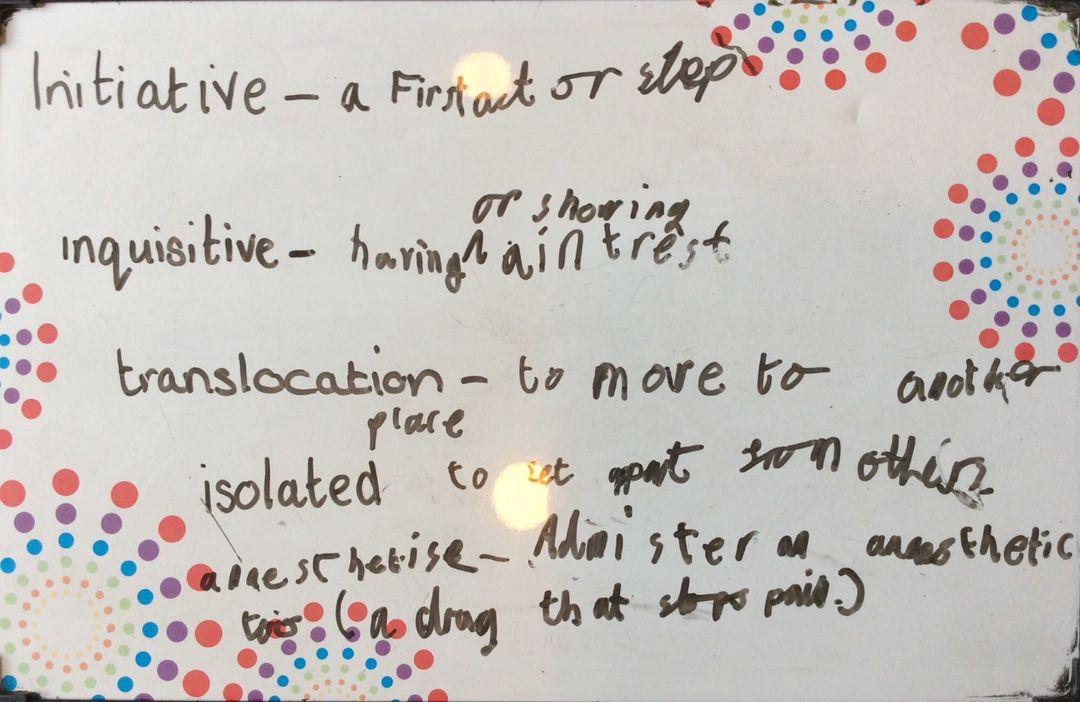 Initiative – a First act or step
or showing
inquisitive – having ^ a intrest
translocation – to move to another
place
isolated to set apart from others
Admister an
(a drug that stops pain.)